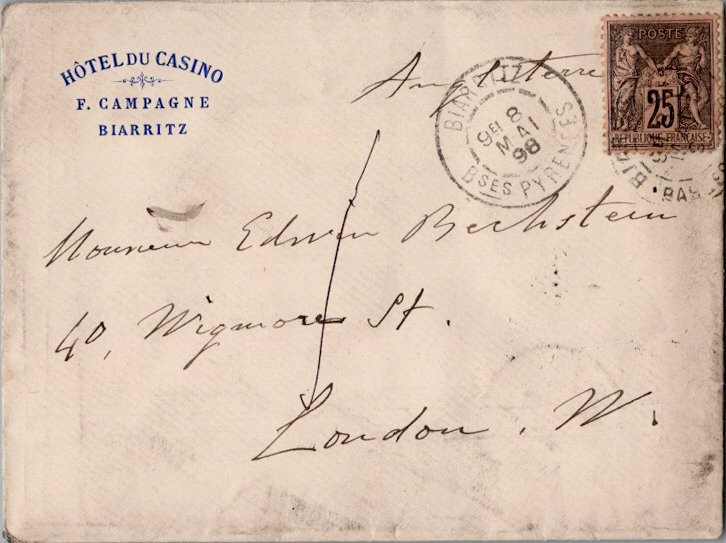 HÔTEL DU CASINO
F. CAMPAGNE
BIARRITZ
Angleterre
POSTE
25
RÉPUBLIQUE FRANÇAISE
BIARRITZ
8
MAI
98
BSES PYRENÉES
Monsieur Edwin Bechstein
40, Wigmore St.
London, W.